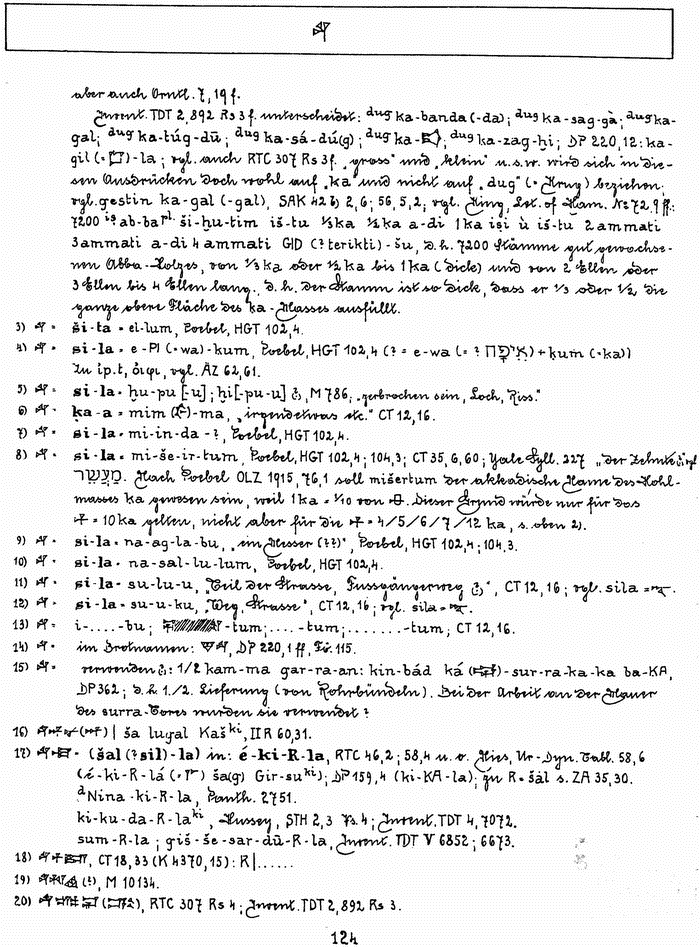 aber auch Orntl. 7, 19 f.
Invent. TDT 2, 892 Rs 3 f. unterscheidet: dug ka-banda (-da); dug ka-sag-gà; dug ka-
gal; dug ka-túg-dū; dug ka-sá-dú(g); dug ka-, dug ka-zag-ḫi; DP 220, 12: ka-
gil (=)-la; vgl. auch RTC 307 Rs 3 f. „gross" und „klein" u.s.w. wird sich in die-
sen Ausdrücken doch wohl auf „ka" und nicht auf „dug" (= Krug) beziehen:
vgl. gestin ka-gal (-gal), SAK 42 b) 2, 6; 56, 5, 2; vgl. King, Let. of Ham. No 72, 9 ff:
7200 iṣ ab-ba pl. ši-ḫu-tim iš-tu 1/3 ka 1/2 ka a-di 1 ka iṣi ù iš-tu 2 ammati
3 ammati a-di 4 ammati GID (? terikti)-šu, d.h. 7200 Stämme gut gewachse-
nen Abba-Holzes, von 1/3 ka oder 1/2 ka bis 1 ka (dick) und von 2 Ellen oder
3 Ellen bis 4 Ellen lang. d.h. der Stamm ist so dick, dass er 1/3 oder 1/2 die
ganze obere Fläche des ka-Masses ausfüllt.
3) = ši-ta = el-lum, Poebel, HGT 102, 4.
4) = si-la = e-PI (= wa)-kum, Poebel, HGT 102, 4 (? = e-wa (= ? אֵיפָה) + ḳum (= ka))
In ip.t, ὀιφι, vgl. ÄZ 62, 61.
5) = si-la = ḫu-pu [-u]; ḫi[-pu-u] M 786; „zerbrochen sein, Loch, Riss."
6) = ḳa-a = mim ()-ma, „irgendetwas etc." CT 12, 16.
7) = si-la = mi-in-da-?, Poebel, HGT 102, 4.
8) = si-la = mi-še-ir-tum, Poebel, HGT 102, 4; 104, 3; CT 35, 6, 60; Yale Syll. 227 „der Zehnte vgl
מַעֲשֵׂר. Nach Poebel OLZ 1915, 76, 1 soll mišertum der akkadische Name des Hohl-
masses ka gewesen sein, weil 1 ka = 1/10 von . Dieser Grund würde nur für das
= 10 ka gelten, nicht aber für die = 4/5/6/7/12 ka, s. oben 2).
9) = si-la = na-ag-la-bu, „ein Messer (??)", Poebel, HGT 102, 4; 104, 3.
10) = si-la = na-sal-lu-lum, Poebel, HGT 102, 4.
11) = si-la = su-lu-u, „Teil der Strasse, Fussgängerweg", CT 12, 16; vgl. sila =
12) = si-la = su-u-ku, „Weg, Strasse", CT 12, 16; vgl. sila =
13) = i-....-bu; -tum; ....-tum; .......-tum; CT 12, 16.
14) = im Brotnamen: , DP 220, 1 ff, 115.
15) = verwenden: 1/2 kam-ma gar-ra-an: kin-bád ká ()-sur-ra-ka-ka ba-KA,
DP 362; d.h 1./2. Lieferung (von Rohrbündeln). Bei der Arbeit an der Mauer
des surra-Tores wurden sie verwendet?
16) | ša lugal Kaš ki, II R 60, 31.
17) = (šal (? sil)-la) in: é-ki-R-la, RTC 46, 2; 58, 4 u. o. Nies, Ur-Dyn. Tabl. 58, 6
(é-ki-R-lá () ša(g) Gir-su ki); DP 159, 4 (ki-KA-la); zu R = šàl s. ZA 35, 30.
d Nina-ki-R-la, Panth. 2751.
ki-ku-da-R-la ki, Hussey, STH 2, 3 Vs. 4; Invent. TDT 4, 7072.
sum-R-la; giš-še-sar-dū-R-la, Invent. TDT V 6852; 6673.
18) , CT 18, 33 (K 4370, 15): R|......
19) (?), M 10134.
20) (), RTC 307 Rs 4; Invent. TDT 2, 892 Rs 3.
124